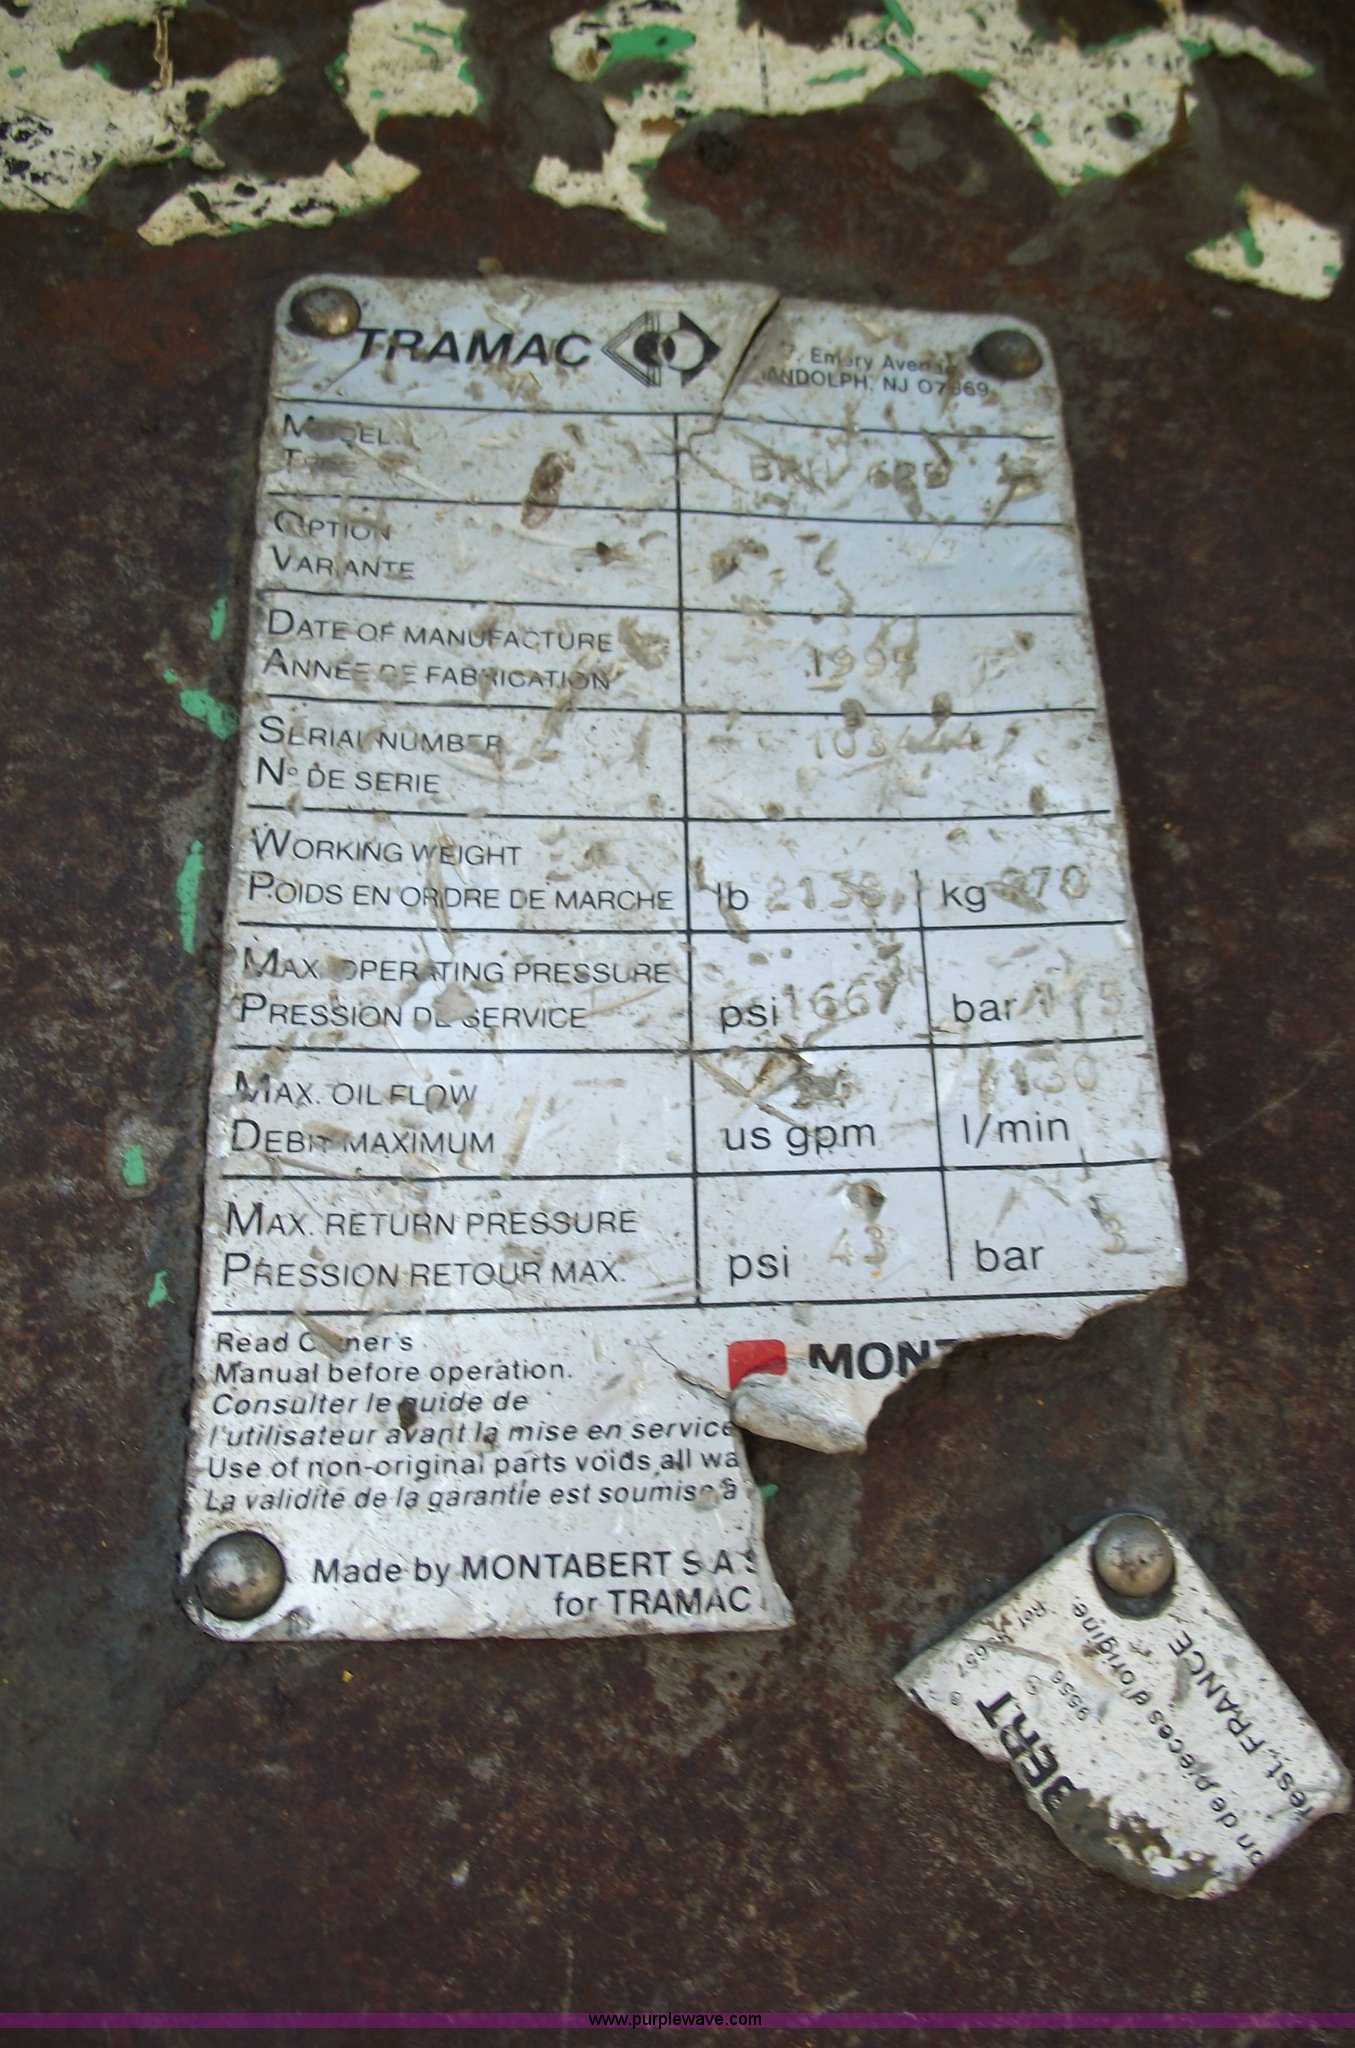 TRAMAC
Avenue
NJ 07869
MODEL
TYPE
BRH 625
OPTION
VARIANTE
DATE OF MANUFACTURE
ANNEE DE FABRICATION
1995
SERIAL NUMBER
N° DE SERIE
WORKING WEIGHT
POIDS EN ORDRE DE MARCHE
lb 2138 kg 970
MAX. OPERATING PRESSURE
PRESSION DE SERVICE
psi 1667 bar 115
MAX. OIL FLOW
DEBIT MAXIMUM
us gpm
130
l/min
MAX. RETURN PRESSURE
PRESSION RETOUR MAX.
psi 43 bar 3
Read Owner's
Manual before operation.
Consulter le guide de
l'utilisateur avant la mise en service
Use of non-original parts voids all wa
La validité de la garantie est soumise à
MONT
Made by MONTABERT S.A.S
for TRAMAC
BERT
9556
on de pièces d'origine.
iest, FRANCE
www.purplewave.com